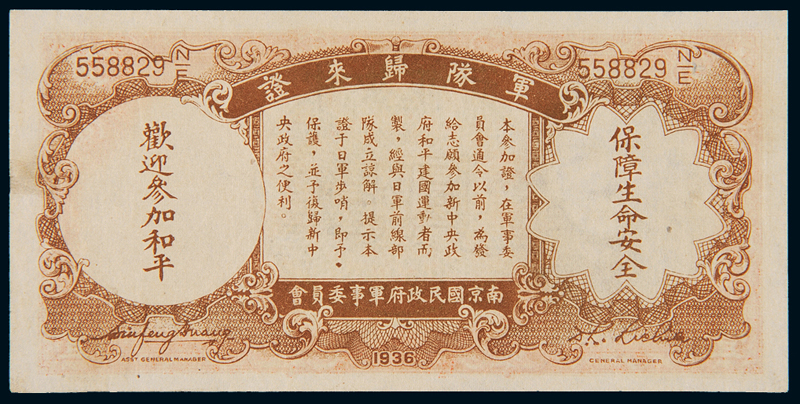 558829 N/E
558829 N/E
軍隊歸來證
保障生命安全
本參加證,在軍事委
員會通令以前,為發
給志願參加新中央政
府和平建國運動者而
製,經與日軍前線部
隊成立諒解。提示本
證于日軍步哨,即予
保護,並予後歸新中
央政府之便利。
歡迎參加和平
南京國民政府軍事委員會
ASST GENERAL MANAGER
1936
GENERAL MANAGER